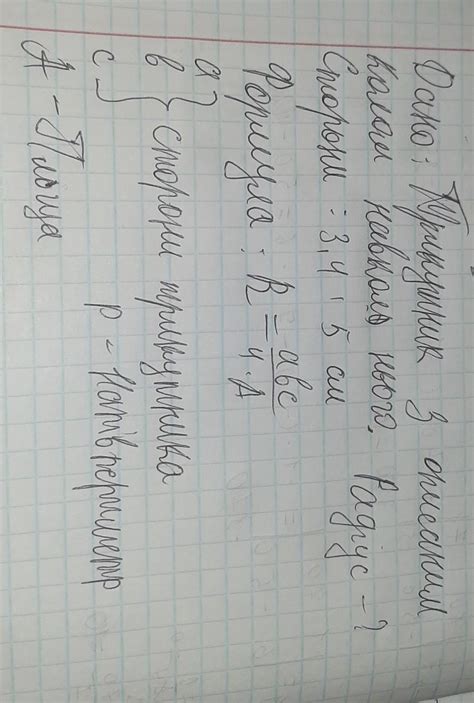 Дано: Трикутник з описаним
колом навколь нього, Радіус - ?
Сторони: 3, 4 і 5 см
Формула: R = abc / 4·A
a
b } сторони трикутника
c
p - Напівпериметр
A - Площа